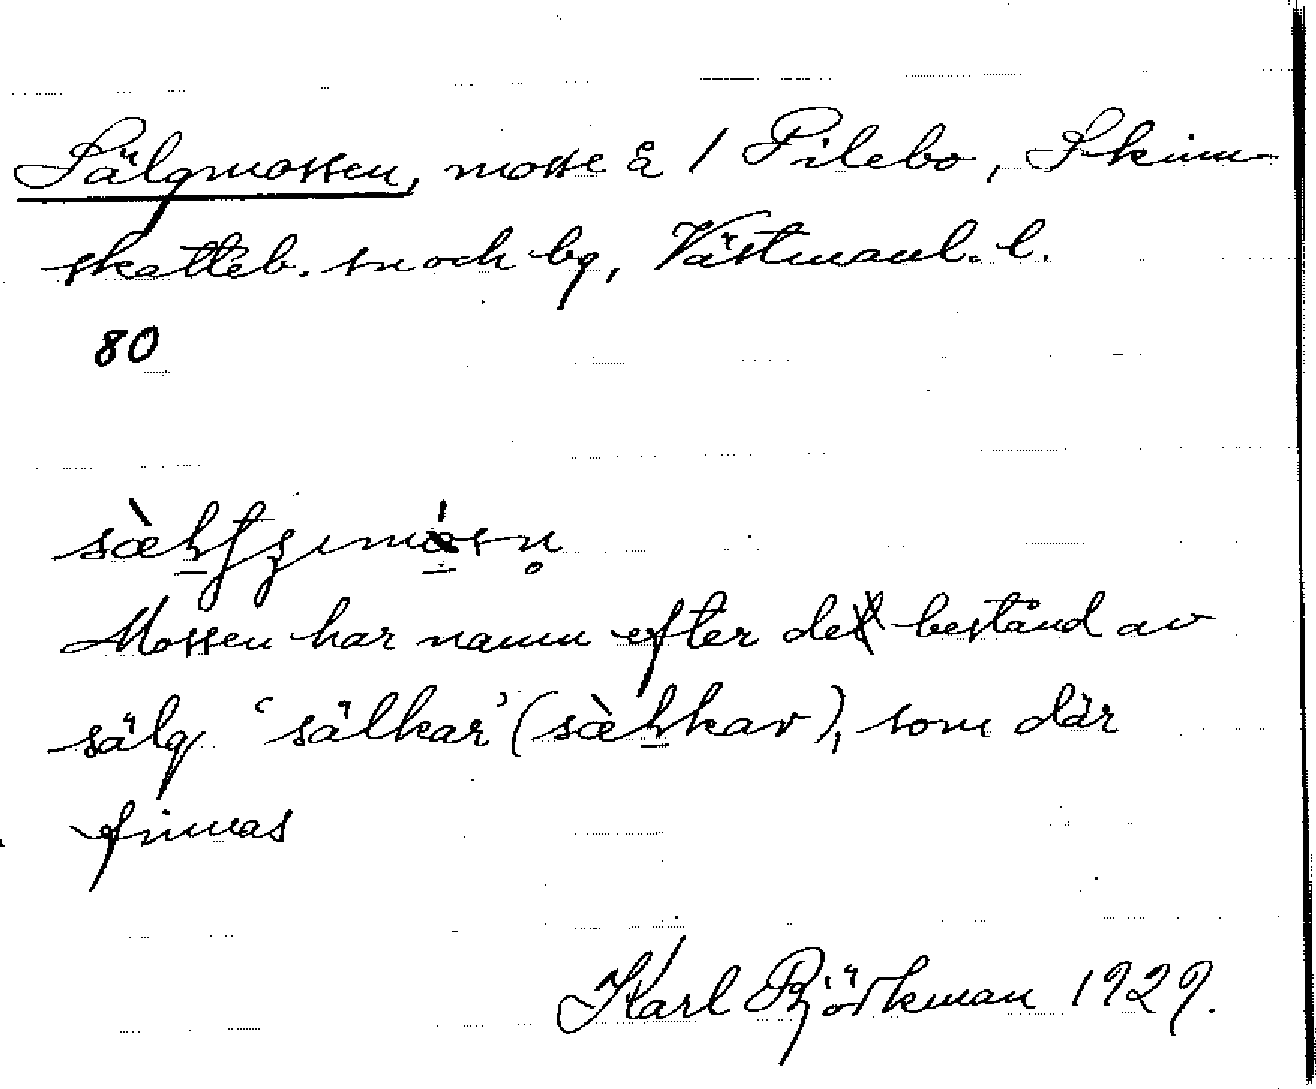 Sälgmossen, mosse å 1 Pilebo, Skinn-
skatteb. sn och bg, Västmanl. l.
80
Mossen har namn efter de bestånd av
sälg 'sälkar' ( ), som där
finnas
Karl Björkman 1929.